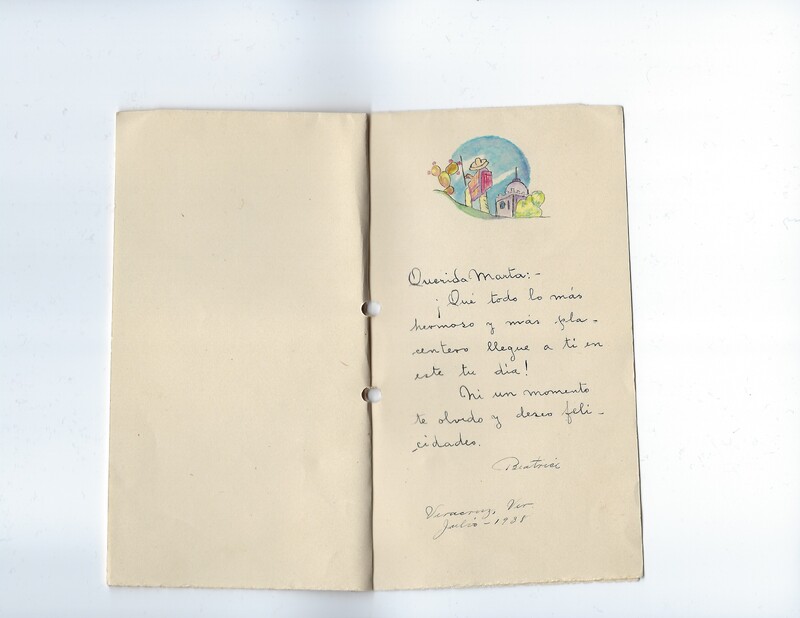 Querida Marta:-
¡Qué todo lo más
hermoso y más pla-
centero llegue a ti en
este tu día!
Ni un momento
te olvido y deseo feli-
cidades.
Beatriz
Veracruz, Ver
Julio-1938